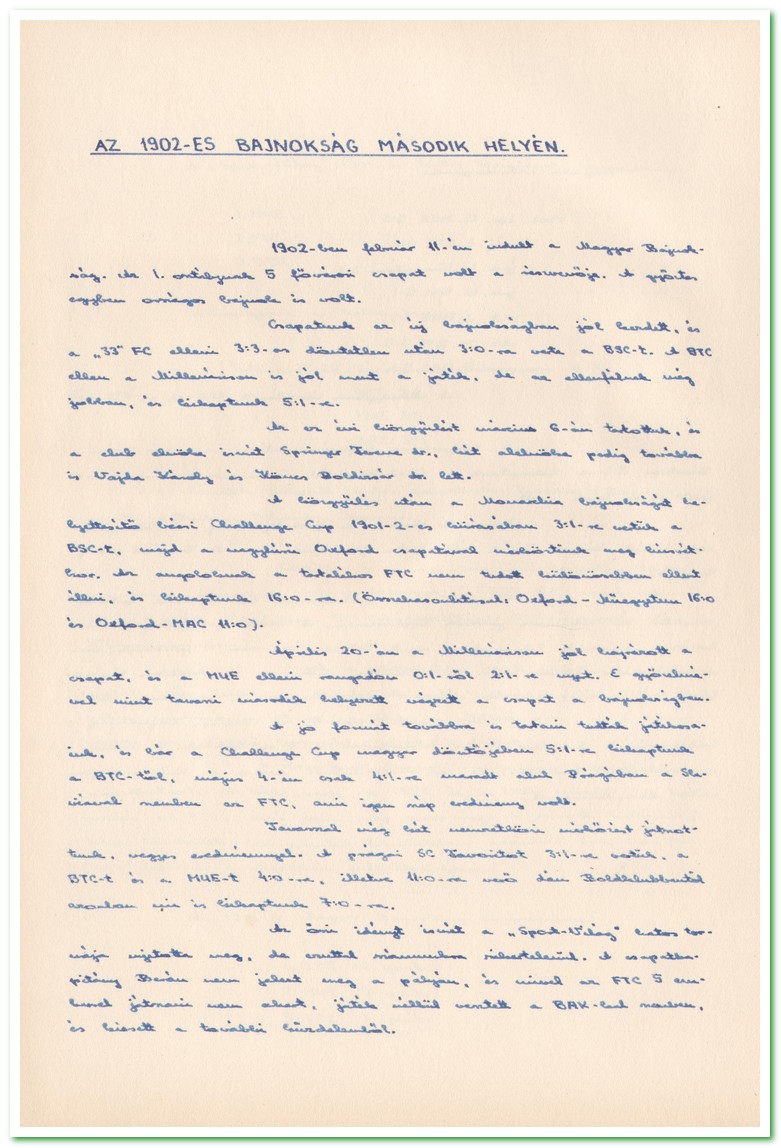 AZ 1902-ES BAJNOKSÁG MÁSODIK HELYÉN.
1902-ben február 11-én indult a Magyar Bajnok-
ság. Az 1. osztálynak 5 fővárosi csapat volt a résztvevője. A győztes
egyben országos bajnok is volt.
Csapatunk az új bajnokságban jól kezdett, és
a „33" FC elleni 3:3-as döntetlen után 3:0-ra verte a BSC-t. A BTC
ellen a Millenárison is jól ment a játék, de az ellenfélnek még
jobban, és kikaptunk 5:1-re.
Az ez évi közgyűlést március 6-án tartottuk, és
a club elnöke ismét Springer Ferenc dr., két alelnöke pedig továbbra
is Vajda Károly és Köncs Boldizsár dr. lett.
A közgyűlés után a Monarchia bajnokságát he-
lyettesítő bécsi Challenge Cup 1901-2-es kiírásában 3:1-re vertük a
BSC-t, majd a nagyhírű Oxford csapatával mérkőztünk meg húsvét-
kor. Az angoloknak a tartalékos FTC nem tudott különösebben ellent
állni, és kikaptunk 16:0-ra. (Összehasonlításul: Oxford - Műegyetem 16:0
és Oxford-MAC 11:0).
Április 20-án a Millenárison jól hajrázott a
csapat, és a MUE elleni rangadón 0:1-ről 2:1-re nyert. E győzelmé-
vel mint tavaszi második helyezett végzett a csapat a bajnokságban.
A jó formát továbbra is tartani tudták játékosa-
ink, és bár a Challenge Cup magyar döntőjében 5:1-re kikaptunk
a BTC-től, május 4-én csak 4:1-re maradt alul Prágában a Sla-
viával szemben az FTC, ami igen szép eredmény volt.
Tavasszal még két nemzetközi mérkőzést játszot-
tunk, vegyes eredménnyel. A prágai SC Favoritot 3:1-re vertük, a
BTC-t és a MUE-t 4:0-ra, illetve 11:0-ra verő dán Boldklubbentől
azonban mi is kikaptunk 7:0-ra.
Az őszi idényt ismét a „Sport-Világ" hatos tor-
nája nyitotta meg, de ezúttal számunkra sikertelenül. A csapatka-
pitány Berán nem jelent meg a pályán, és mivel az FTC 5 em-
berrel játszani nem akart, játék nélkül vesztett a BAK-kal szemben,
és kiesett a további küzdelemből.